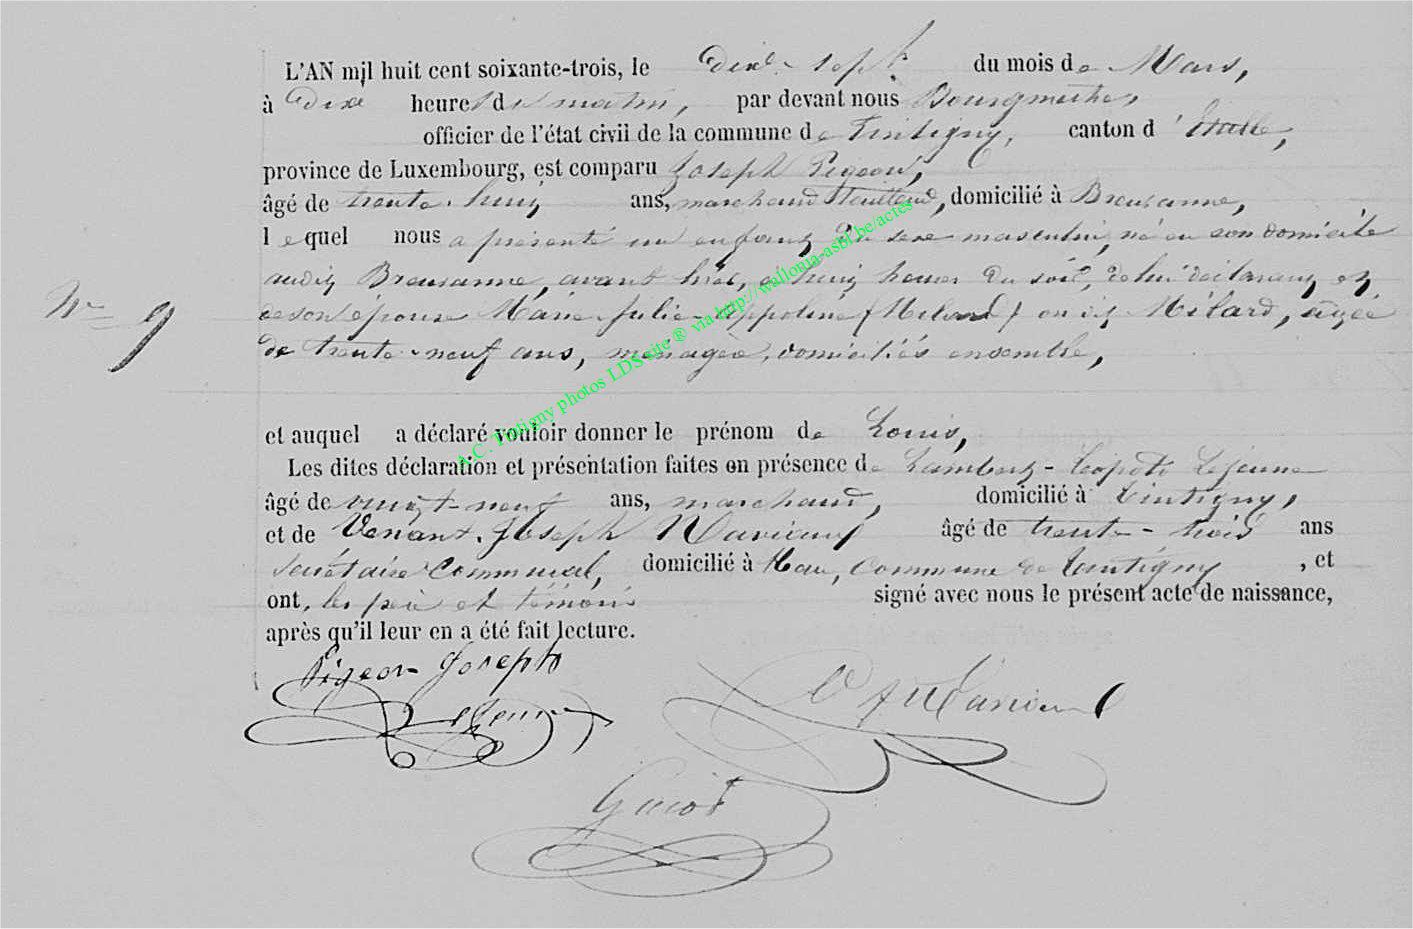 L'AN mil huit cent soixante-trois, le Dix-sept du mois de Mars,
à Dix heures du matin, par devant nous Bourgmestre,
officier de l'état civil de la commune de Tintigny, canton d'Etalle,
province de Luxembourg, est comparu Joseph Pigeon,
âgé de trente-huit ans, marchand, domicilié à Breuvanne,
lequel nous a présenté un enfant du sexe masculin, né en son domicile
audit Breuvanne, avant hier, à huit heures du soir, de lui déclarant et
de son épouse Marie-Julie-Appoline (Milard) ou dit Mélard, âgée
de trente-neuf ans, ménagère, domiciliés ensemble,
N° 9
et auquel a déclaré vouloir donner le prénom de Louis,
Les dites déclaration et présentation faites en présence de Lambert-Léopold Lejeune
âgé de vingt-neuf ans, marchand, domicilié à Tintigny,
et de Venant-Joseph Maniand âgé de trente-trois ans
Secrétaire Communal, domicilié à Han, Commune de Tintigny, et
ont, les père et témoins signé avec nous le présent acte de naissance,
après qu'il leur en a été fait lecture.
Pigeon Joseph
Lejeune
Guiot
A.C. Tintigny photos LDS site ® via http://wallonia-asbl.be/actes